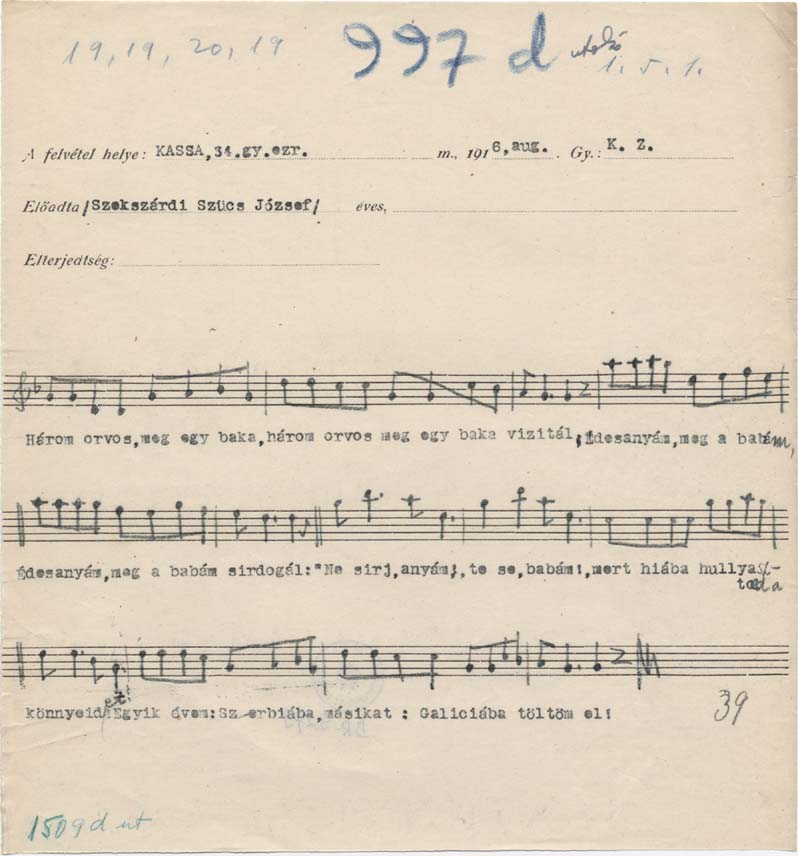 19, 19, 20, 19 997 d utolsó 1. 5. 1.
A felvétel helye: KASSA, 34.gy.ezr. m., 1916, aug. Gy.: K. Z.
Előadta /Szekszárdi Szücs József/ éves,
Elterjedtség:
Három orvos, meg egy baka, három orvos meg egy baka vizitál; Édesanyám, meg a babám,
Édesanyám, meg a babám sirdogál: "Ne sirj, anyám!, te se, babám!, mert hiába hullya-
tod a
könnyeid! Egyik évem: Sz erbiába, másikat : Galiciába töltöm el!
39
1509 d ut